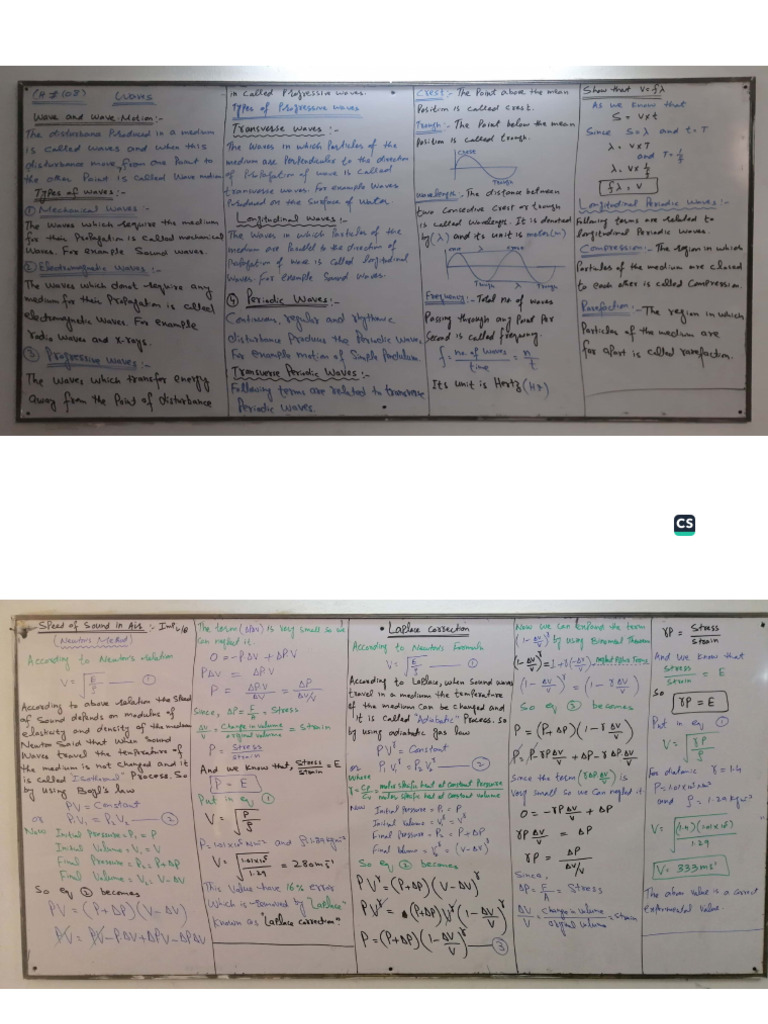 CH # (08) Waves
Wave and Wave Motion:-
The disturbance Produced in a medium
is called waves and when this
disturbance move from one Point to
the other Point is called Wave motion
Types of waves:-
① Mechanical Waves:-
The waves which require the medium
for their Propagation is called mechanical
Waves. For example Sound waves.
② Electromagnetic Waves:-
The waves which donot require any
medium for their Propagation is called
electromagnetic Waves. For example
radio waves and x-rays.
③ Progressive waves:-
The waves which transfer energy
away from the Point of disturbance
in called Progressive waves.
Types of Progressive waves
Transverse Waves:-
The Waves in which Particles of the
medium are Perpendicular to the direction
of Propagation of wave is called
transverse waves. For example Waves
Produced on the Surface of Water.
Longitudinal Waves:-
The Waves in which Particles of the
medium are Parallel to the direction of
Propagation of wave is called longitudinal
Waves. For example Sound Waves.
④ Periodic Waves:-
Continuous, regular and rhythmic
disturbance Produce the Periodic Wave
For example motion of Simple Pendulum.
Transverse Periodic Waves:-
Following terms are related to transverse
Periodic Waves.
Crest:- The Point above the mean
Position is called crest.
Trough:- The Point below the mean
Position is called trough.
Crest
Trough
Wavelength:- The distance between
two Crest or trough
is called Wavelength. It is denoted
by (λ) and its unit is meter(m)
λ
Trough λ Trough
Frequency:- Total no. of waves
Passing through any Point Per
Second is called frequency.
f = no. of waves / time = n / t
Its Unit is Hertz (Hz)
Show that V = fλ
As we know that
S = V x t
Since S = λ and t = T
λ = V x T
and T = 1/f
λ = V x 1/f
fλ = V
Longitudinal Periodic Waves:-
Following terms are related to
longitudinal Periodic Waves.
Compression:- The region in which
Particles of the medium are closed
to each other is called Compression.
Rarefaction:- The region in which
Particles of the medium are
far apart is called rarefaction.
CS
Speed of Sound in Air:-
(Newton's Method)
According to Newton's relation
V = √(E/ρ) —— ①
According to above relation the Speed
of Sound depends on modulus of
elasticity and density of the medium
Newton Said that when Sound
Waves travel the temperature of
the medium is not changed and it
is called "Isothermal" Process. So
by using Boyl's law
PV = Constant
or P₁V₁ = P₂V₂ —— ②
Now Initial Pressure = P₁ = P
Initial Volume = V₁ = V
Final Pressure = P₂ = P+ΔP
Final Volume = V₂ = V-ΔV
So eq ② becomes
PV = (P+ΔP)(V-ΔV)
PV = PV-PΔV+ΔPV-ΔPΔV
The term (ΔPΔV) is very small so we
Can neglect it.
0 = -PΔV + ΔPV
PΔV = ΔPV
P = ΔPV/ΔV = ΔP/(ΔV/V)
Since, ΔP = F/A = Stress
ΔV/V = Change in volume / original volume = Strain
P = Stress/Strain
And we know that, Stress/Strain = E
P = E
Put in eq ①
V = √(P/ρ)
V = √(1.01x10⁵/1.29) = 280ms⁻¹
This Value have 16% error
Which is removed by "Laplace"
Known as "Laplace correction"
• Laplace Correction
According to Newton's Formula
V = √(E/ρ) —— ①
According to Laplace, when Sound waves
travel in a medium the temperature
of the medium can be changed and
it is called "Adiabatic" Process. So
by using adiabatic gas law
PVᵞ = Constant
or P₁V₁ᵞ = P₂V₂ᵞ —— ②
Where
γ = Cp/Cv = molar specific heat at constant Pressure / molar specific heat at constant volume
Now Initial Pressure = P₁ = P
Initial Volume = V₁ᵞ = Vᵞ
Final Pressure = P₂ = P+ΔP
Final Volume = V₂ᵞ = (V-ΔV)ᵞ
So eq ② becomes
PVᵞ = (P+ΔP)(V-ΔV)ᵞ
PVᵞ = (P+ΔP)Vᵞ(1-ΔV/V)ᵞ
P = (P+ΔP)(1-ΔV/V)ᵞ —— ③
Now we can expand the term
(1-ΔV/V)ᵞ by using Binomial Theorem
(1-ΔV/V)ᵞ = 1+γ(-ΔV/V)
(1-ΔV/V)ᵞ = (1-γΔV/V)
So eq ③ becomes
P = (P+ΔP)(1-γΔV/V)
P = P-γPΔV/V+ΔP-γΔPΔV/V
Since the term (γΔPΔV/V) is
Very small So we Can neglect it.
0 = -γPΔV/V + ΔP
γPΔV/V = ΔP
γP = ΔP/(ΔV/V)
Since,
ΔP = F/A = Stress
ΔV/V = change in volume / original volume = Strain
γP = Stress/Strain
And we Know that
Stress/Strain = E
So
γP = E
Put in eq ①
V = √(γP/ρ)
For diatomic γ = 1.4
V = √((1.4)(1.01x10⁵)/1.29)
V = 333ms⁻¹
The above Value is a correct
experimental Value.